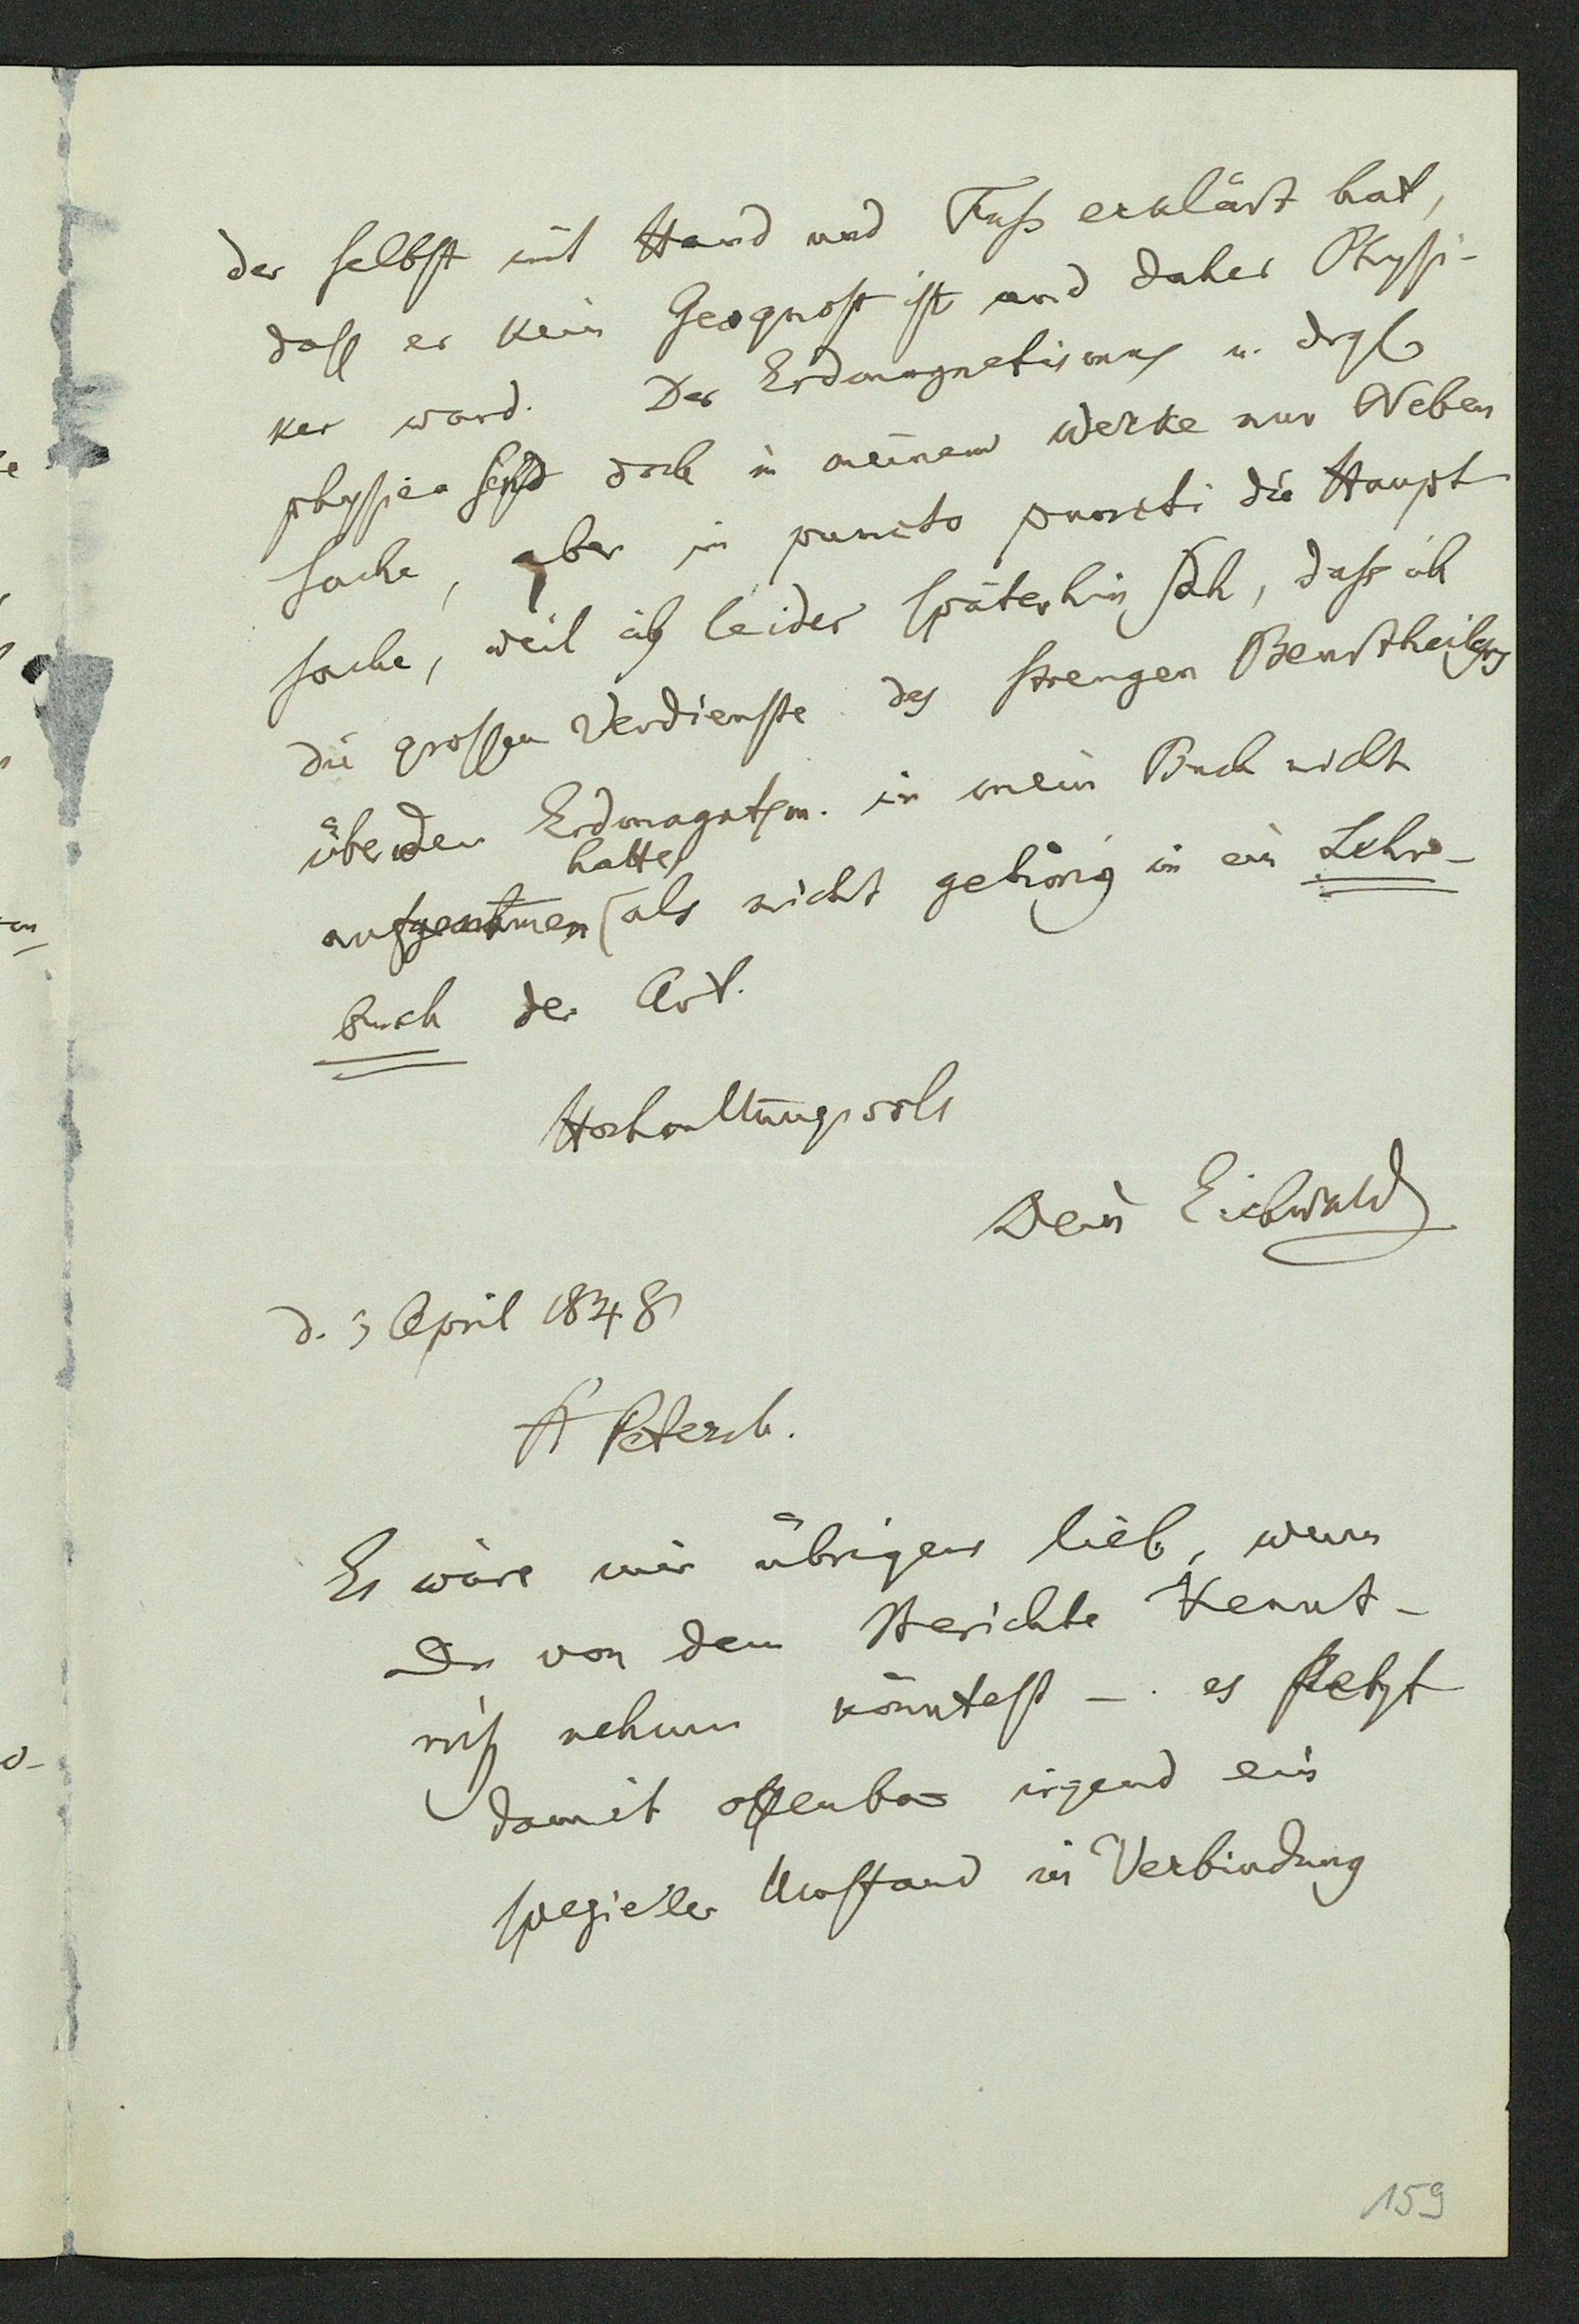 der selbst mit Hand und Fuß erklärt hat,
daß er kein Geognost ist und daher Physi-
ker ward. Der Erdmagnetismus u. drgl
physica sind doch in meinem Werke nur Neben
sache, aber in puncto puncti die Haupt
sache, weil ich leider späterhin sah, daß ich
die großen Verdienste des strengen Beurtheilers
über den Erdmagntsm. in mein Buch nicht
hatte
aufgenommen (als nicht gehörig in ein Lehr-
buch der Art.
Hochachtungsvoll
Dein Eichwald
d. 3 April 1848
St Petersb.
Es wäre mir übrigens lieb, wenn
Du von dem Berichte Kennt-
niß nehmen könntest -. es steht
damit offenbar irgend ein
spezieller Umstand in Verbindung
159